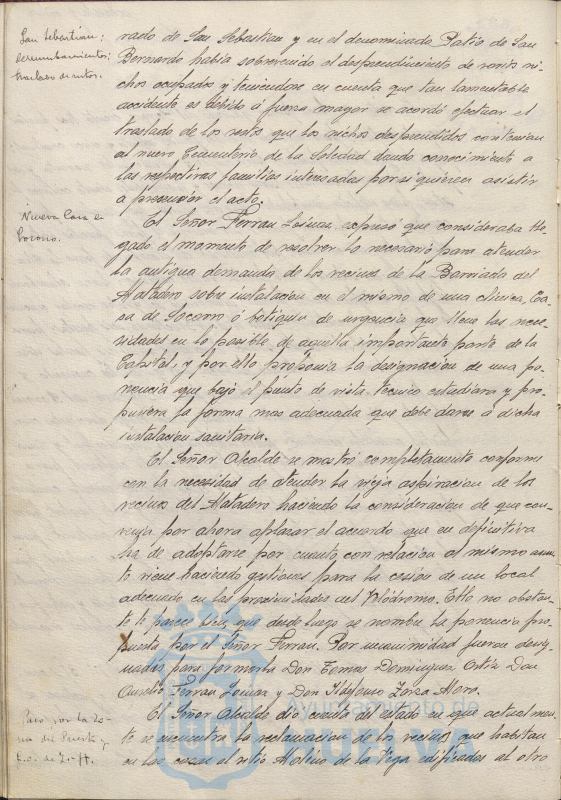 San Sebastian:
derrumbamientos:
traslado de restos.
rado de San Sebastian y en el denominado Patio de San
Bernardo habia sobrevenido el desprendimiento de varios ni-
chos ocupados y teniendose en cuenta que tan lamentable
accidente es debido á fuerza mayor se acordó efectuar el
traslado de los restos que los nichos desprendidos contenian
al nuevo Cementerio de la Soledad dando conocimiento a
las respectivas familias interesadas por si quieren asistir
a presenciar el acto.
Nueva Casa de
Socorro.
El Señor Ferrau Loinaz, expresó que consideraba lle-
gado el momento de resolver lo necesario para atender
la antigua demanda de los vecinos de la Barriada del
Matadero sobre instalacion en el mismo de una clínica, Ca-
sa de Socorro ó botiquin de urgencia que llene las nece-
sidades en lo posible de aquella importante parte de la
Capital, y por ello proponia la designacion de una po-
nencia que bajo el punto de vista tecnico estudiara y pro-
pusiera la forma mas adecuada que debe darse á dicha
instalacion sanitaria.
El Señor Alcalde se mostró completamente conforme
con la necesidad de atender la vieja aspiracion de los
vecinos del Matadero haciendo la consideracion de que con-
venia por ahora aplazar el acuerdo que en definitiva
ha de adoptarse por cuanto con relacion al mismo asun-
to viene haciendo gestiones para la cesión de un local
adecuado en las proximidades del Velódromo. Ello no obstan-
te le parece bien que desde luego se nombre la ponencia pro-
puesta por el Señor Ferrau. Por unanimidad fueron desig-
nados para formarla Don Tomas Dominguez Ortiz Don
Aurelio Ferrau Loinaz y Don Ildefonso Zorza Mora.
Paso por la Zo-
na del Puerto y
El Señor Alcalde dió cuenta del estado en que actualmen-
te se encuentra la reclamacion de los vecinos que habitan
en las casas al sitio Molino de la Vega edificadas al otro
Ayuntamiento de
HUELVA